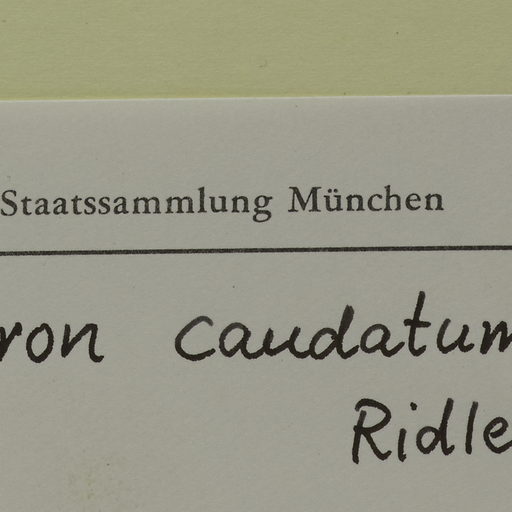 Staatssammlung München
ron caudatum
Ridle